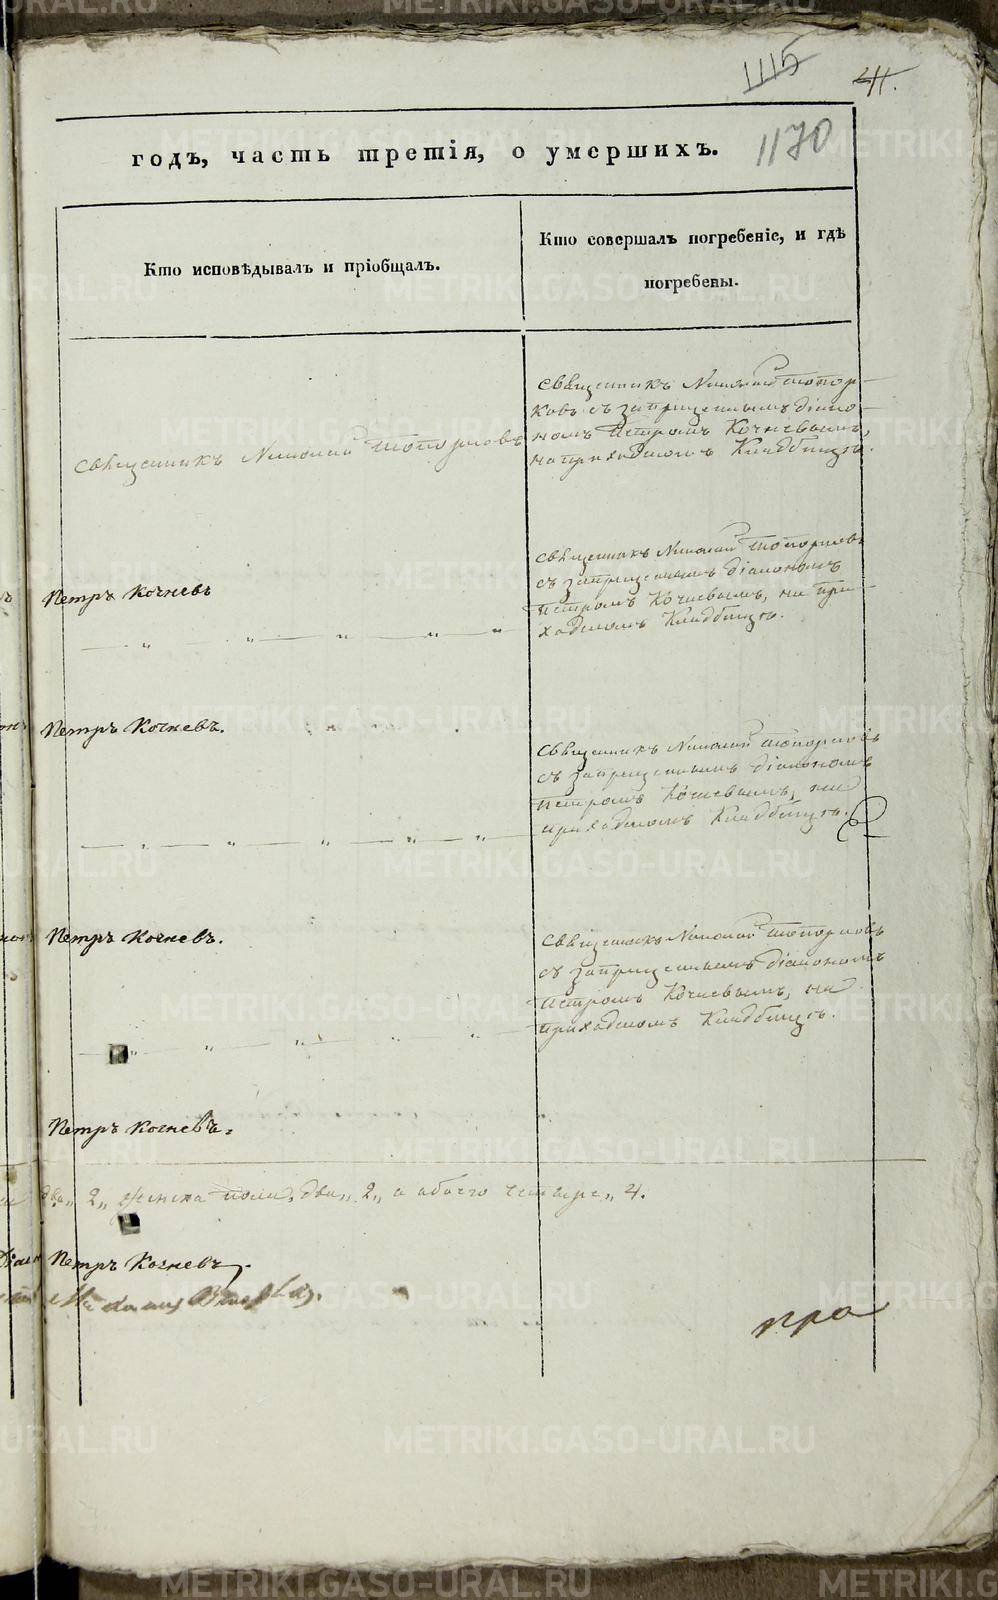 1115
41.
1170
годъ, часть третія, о умершихъ.
Кто исповѣдывалъ и пріобщалъ.
Кто совершалъ погребеніе, и гдѣ
погребены.
священникъ Николай Топор-
ковъ съ запрещеннымъ діако-
номъ Петромъ Кочневымъ,
на приходскомъ Кладбищѣ.
священникъ Николай Топорковъ
священникъ Николай Топорковъ
съ запрещеннымъ діакономъ
Петромъ Кочневымъ, на при-
ходскомъ Кладбищѣ.
Петръ Кочневъ
священникъ Николай Топорковъ
съ запрещеннымъ діакономъ
Петромъ Кочневымъ, на
приходскомъ Кладбищѣ.
Петръ Кочневъ.
священникъ Николай Топорковъ
съ запрещеннымъ діакономъ
Петромъ Кочневымъ, на
приходскомъ Кладбищѣ.
Петръ Кочневъ.
Петръ Кочневъ.
два „2„ женска пола, два „2„ а обоего четыре „4.
Петръ Кочневъ.
METRIKI.GASO-URAL.RU